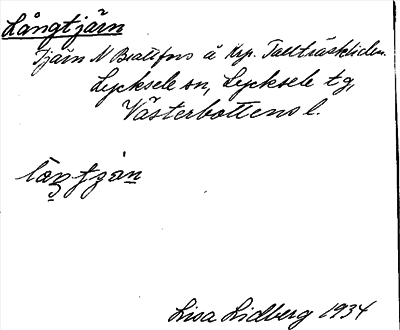 Långtjärn
Tjärn N Brattfors å Krp. Tallträskliden.
Lycksele sn, Lycksele tg,
Västerbottens l.
Lisa Lidberg 1934